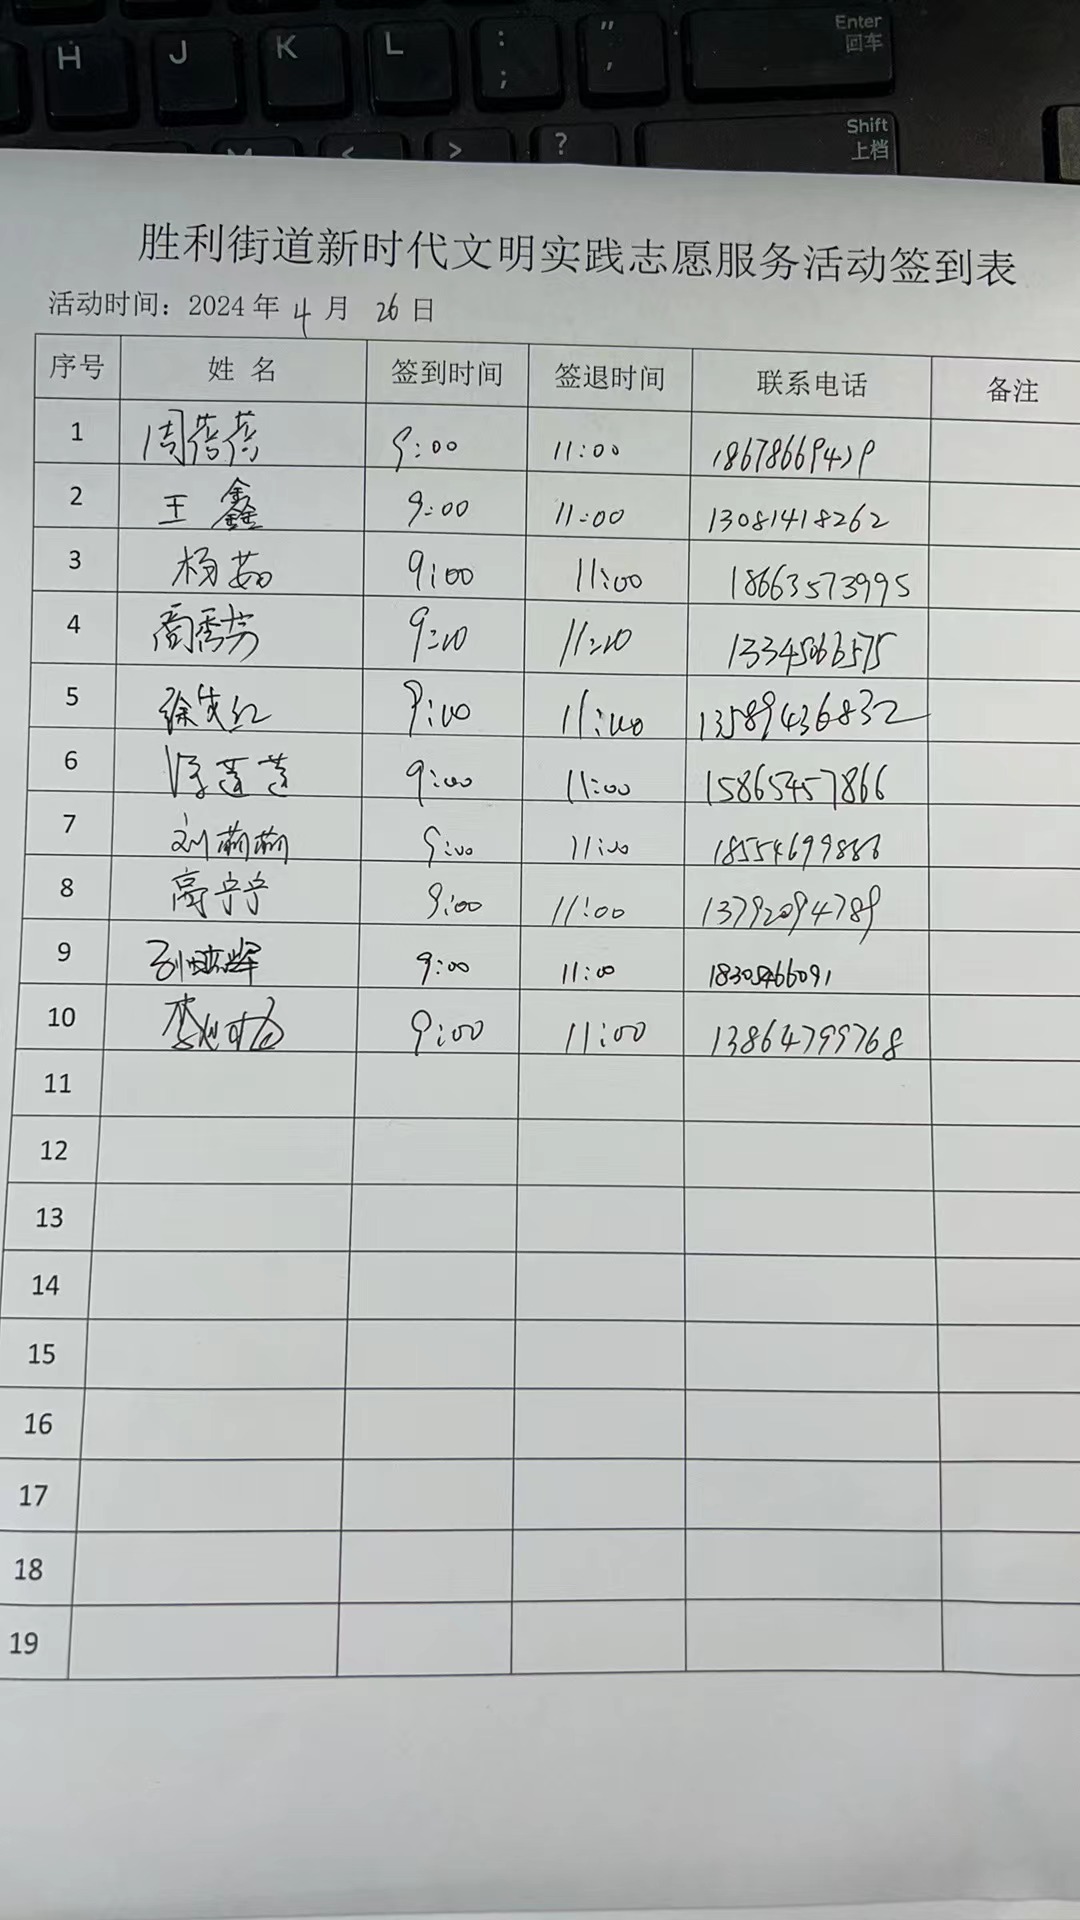 H J K L : ; " ' Enter 回车
< > ? Shift 上档
胜利街道新时代文明实践志愿服务活动签到表
活动时间：2024 年 4 月 26 日
序号 姓 名 签到时间 签退时间 联系电话 备注
1 周蓓蓓 9:00 11:00
2 王鑫 9:00 11:00 13081418262
3 杨茹 9:00 11:00 18663573995
4 9:00 11:00 13345066575
5 9:00 11:00 13589436832
6 9:00 11:00 15865457866
7 刘萌萌 9:00 11:00
8 高宁宁 9:00 11:00 13792094789
9 9:00 11:00 18305466091
10 9:00 11:00 13864799768
11
12
13
14
15
16
17
18
19